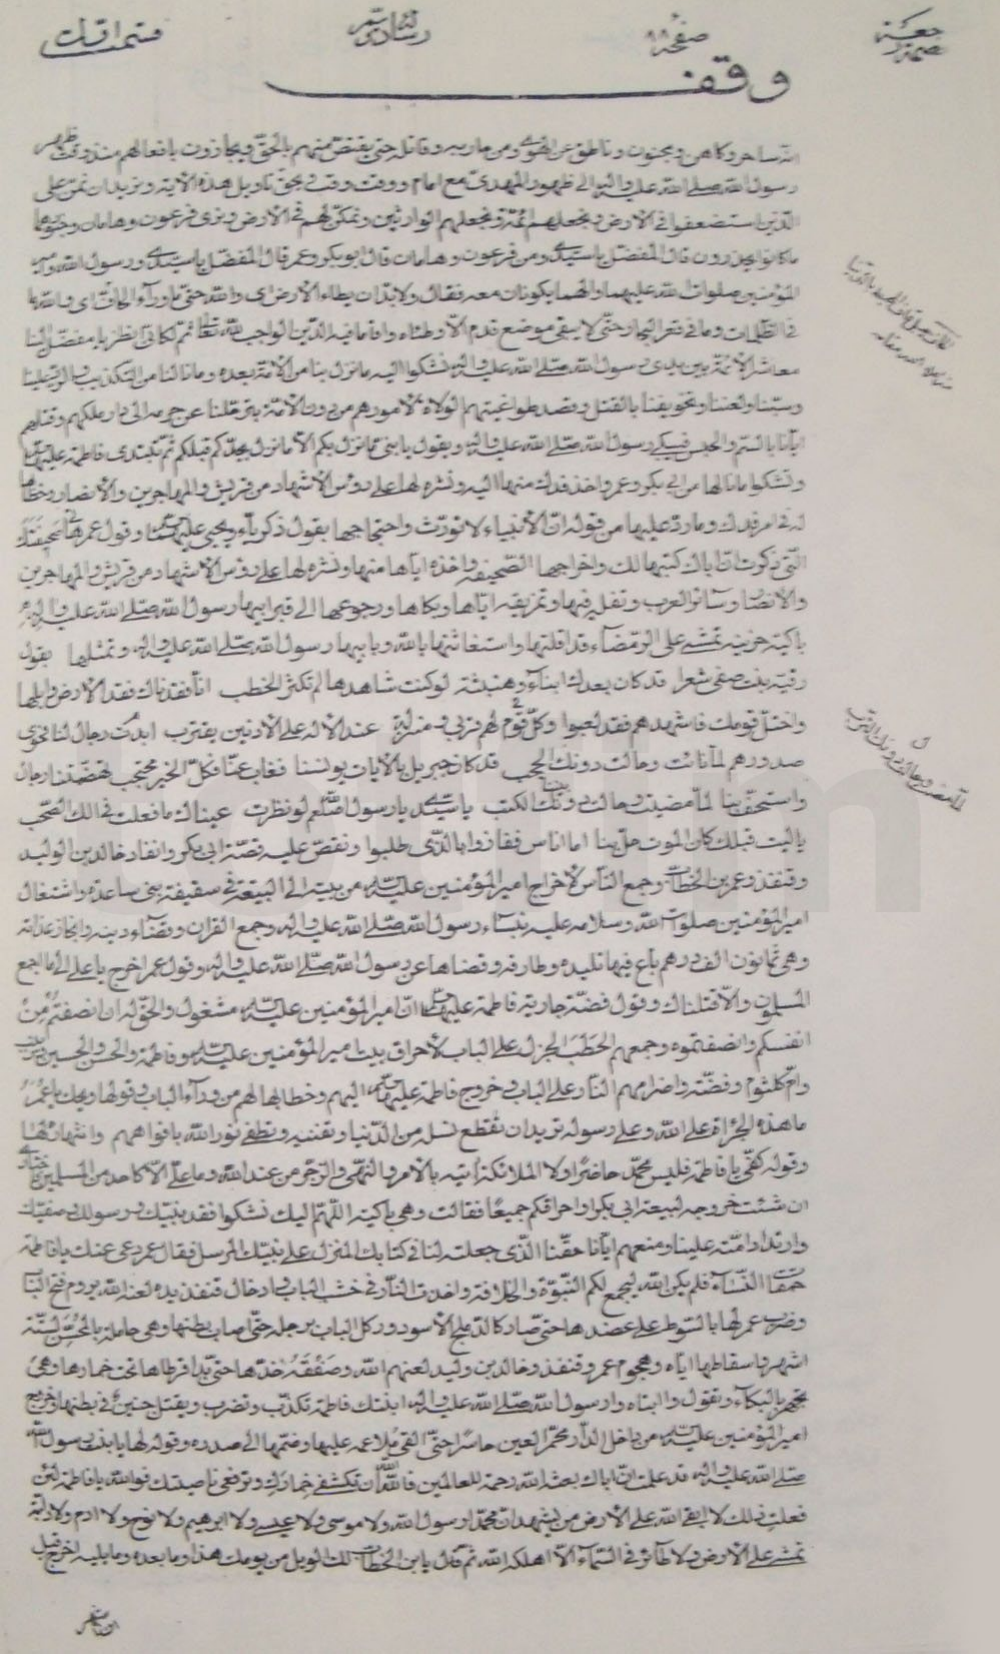 صفحه
وقف
انه ساحر وكاهن ومجنون وناطق عن الهوى ومن حاربه وقاتله حتى يقتص منهم بالحق ويجازون بافعالهم منذ وقت ظهر
رسول الله صلى الله عليه واله الى ظهور المهدى مع امام امام ووقت وقت ويحق تاويل هذه الاية ونريد ان نمن على
الذين استضعفوا فى الارض ونجعلهم ائمة ونجعلهم الوارثين ونمكن لهم فى الارض ونرى فرعون وهامان وجنودهما
ما كانوا يحذرون قال المفضل يا سيدى ومن فرعون وهامان قال ابو بكر وعمر قال المفضل يا سيدى ورسول الله وامير
المؤمنين صلوات الله عليهما والهما يكونان معه فقال ولا بد ان يطاء الارض اى والله حتى ما وراء القاف اى والله وما
فى الظلمات وما فى قعر البحار وحتى لا يبقى موضع قدم الا وطئاه واقاما فيه الدين الواجب لله تعالى ثم لكانى انظر يا مفضل الينا
معاشر الائمة بين يدى رسول الله صلى الله عليه واله نشكوا اليه ما نزل بنا من الامة بعده وما نالنا من التكذيب والرد علينا
وسبنا ولعننا وتخويفنا بالقتل وقصد طواغيتهم الولاة لامورهم من دون الامة بترحلنا عن حرمه الى دار ملكهم وقتلهم
ايانا بالسم والحبس فيبكى رسول الله صلى الله عليه واله ويقول يا بنى ما نزل بكم الا ما نزل بجدكم قبلكم ثم تبتدى فاطمة عليها
وتشكوا ما نالها من ابى بكر وعمر واخذ فدك منها
له فى امر فدك وما رد عليها من قوله ان الانبياء لا تورث واحتجاجها بقول ذكريا ويحيى وقول عمر هاتى صحيفتك
التى ذكرت ان اباك كتبها لك واخراجها الصحيفه واخذه اياها منها ونشره لها على رؤس الاشهاد من قريش والمهاجرين
والانصار وسائر العرب وتفله فيها وتمزيقه اياها وبكاها ورجوعها الى قبر ابيها رسول الله صلى الله عليه واله
باكية حزينة تمشى على الرمضاء قد اقلقتها واستغاثتها بالله وبابيها رسول الله صلى الله عليه واله وتمثلها بقول
رقية بنت صفى شعرا قد كان بعدك ابناء وهنبثة لو كنت شاهدها لم تكثر الخطب انا فقدناك فقد الارض وابلها
واختل قومك فاشهدهم فقد لعبوا وكل قوم لهم قربى ومنزلة عند الاله على الادنين يقترب ابدت رجال لنا فحوى
صدورهم لما نات وحالت دونك الحجب قد كان جبريل بالايات يونسنا فغاب عنا فكل الخير محتجب تهضمتنا رجال
واستخف بنا لما مضيت وحالت دونك الكتب يا سيدى يا رسول الله لو نظرت عيناك ما فعلت فى الك الصحب
يا ليت قبلك كان الموت حل بنا اما اناس ففازوا بالذى طلبوا وتقص عليه قصة ابى بكر وانفاد خالد بن الوليد
وقنفذ وعمر بن الخطاب وجمع الناس لاخراج امير المؤمنين عليه السلام من بيته الى البيعة فى سقيفة بنى ساعدة واشتغال
امير المؤمنين صلوات الله وسلامه عليه بنساء رسول الله صلى الله عليه واله وجمع القران وقضاء دينه وانجاز عداته
وهى ثمانون الف درهم باع فيها تليده وطارفه وقضاها عن رسول الله صلى الله عليه واله وقول عمر اخرج يا على الى ما اجمع
المسلمون والا قتلناك وقول فضة جارية فاطمة ان امير المؤمنين عليه السلام مشغول والحق له ان انصفتم من
انفسكم وانصفتموه وجمعهم الحطب الجزل على الباب لاحراق بيت امير المؤمنين عليه السلام وفاطمة والحسن والحسين
وام كلثوم وفضة واضرامهم النار على الباب وخروج فاطمة اليهم وخطابها لهم من وراء الباب وقولها ويحك يا عمر
ما هذه الجراة على الله وعلى رسوله تريد ان تقطع نسله من الدنيا وتفنيه وتطفى نور الله بافواههم وانتهاره لها
وقوله كفى يا فاطمة فليس محمد حاضرا ولا الملائكة اتيه بالامر والنهى والزجر من عند الله وما على الا كاحد من المسلمين
ان شئت خروجه لبيعة ابى بكر او احراقكم جميعا فقالت وهى باكية اللهم اليك نشكوا فقد نبيك ورسولك وصفيك
وارتداد امته علينا ومنعهم ايانا حقنا الذى جعلته لنا فى كتابك المنزل على نبيك المرسل فقال عمر دعى عنك يا فاطمة
حمقا النساء فلم يكن الله ليجمع لكم النبوة والخلافة واخذت النار فى خشب الباب وادخال قنفذ يده لعنه الله يروم فتح الباب
وضرب عمر لها بالسوط على عضدها حتى صار كالدملج الاسود وركل الباب برجله حتى اصاب بطنها وهى حاملة بالمحسن لستة
اشهر واسقاطها اياه وهجوم عمر وقنفذ وخالد بن وليد لعنهم الله وصفقة خدها حتى بدا قرطاها تحت خمارها وهى
تجهر بالبكاء وتقول وا ابتاه وا رسول الله صلى الله عليه واله ابنتك فاطمة تكذب وتضرب ويقتل جنين فى بطنها وخروج
امير المؤمنين عليه السلام من داخل الدار محمر العين حاسرا حتى القى ملاءته عليها وضمها الى صدره وقوله لها يا بنت رسول الله
صلى الله عليه واله قد علمت ان اباك بعثه الله رحمة للعالمين فالله الله ان تكشفى خمارك وترفعى ناصيتك فوالله يا فاطمة لئن
فعلت ذلك لا ابقى الله على الارض من يشهد ان محمدا رسول الله ولا موسى ولا عيسى ولا ابرهيم ولا نوح ولا ادم ولا دابة
تمشى على الارض ولا طائر فى السماء الا اهلكه الله ثم قال يا بن الخطاب لك الويل من يومك هذا وما بعده وما يليه اخرج قبل